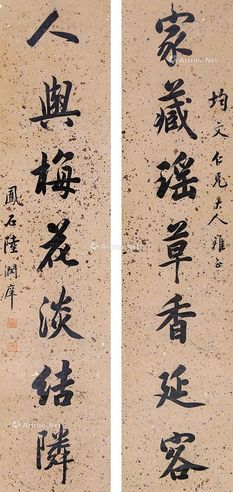 均文仁兄大人雅正
家藏瑶草香延客
人與梅花淡結隣
鳳石陸潤庠
Artron.Net
Artron.Net